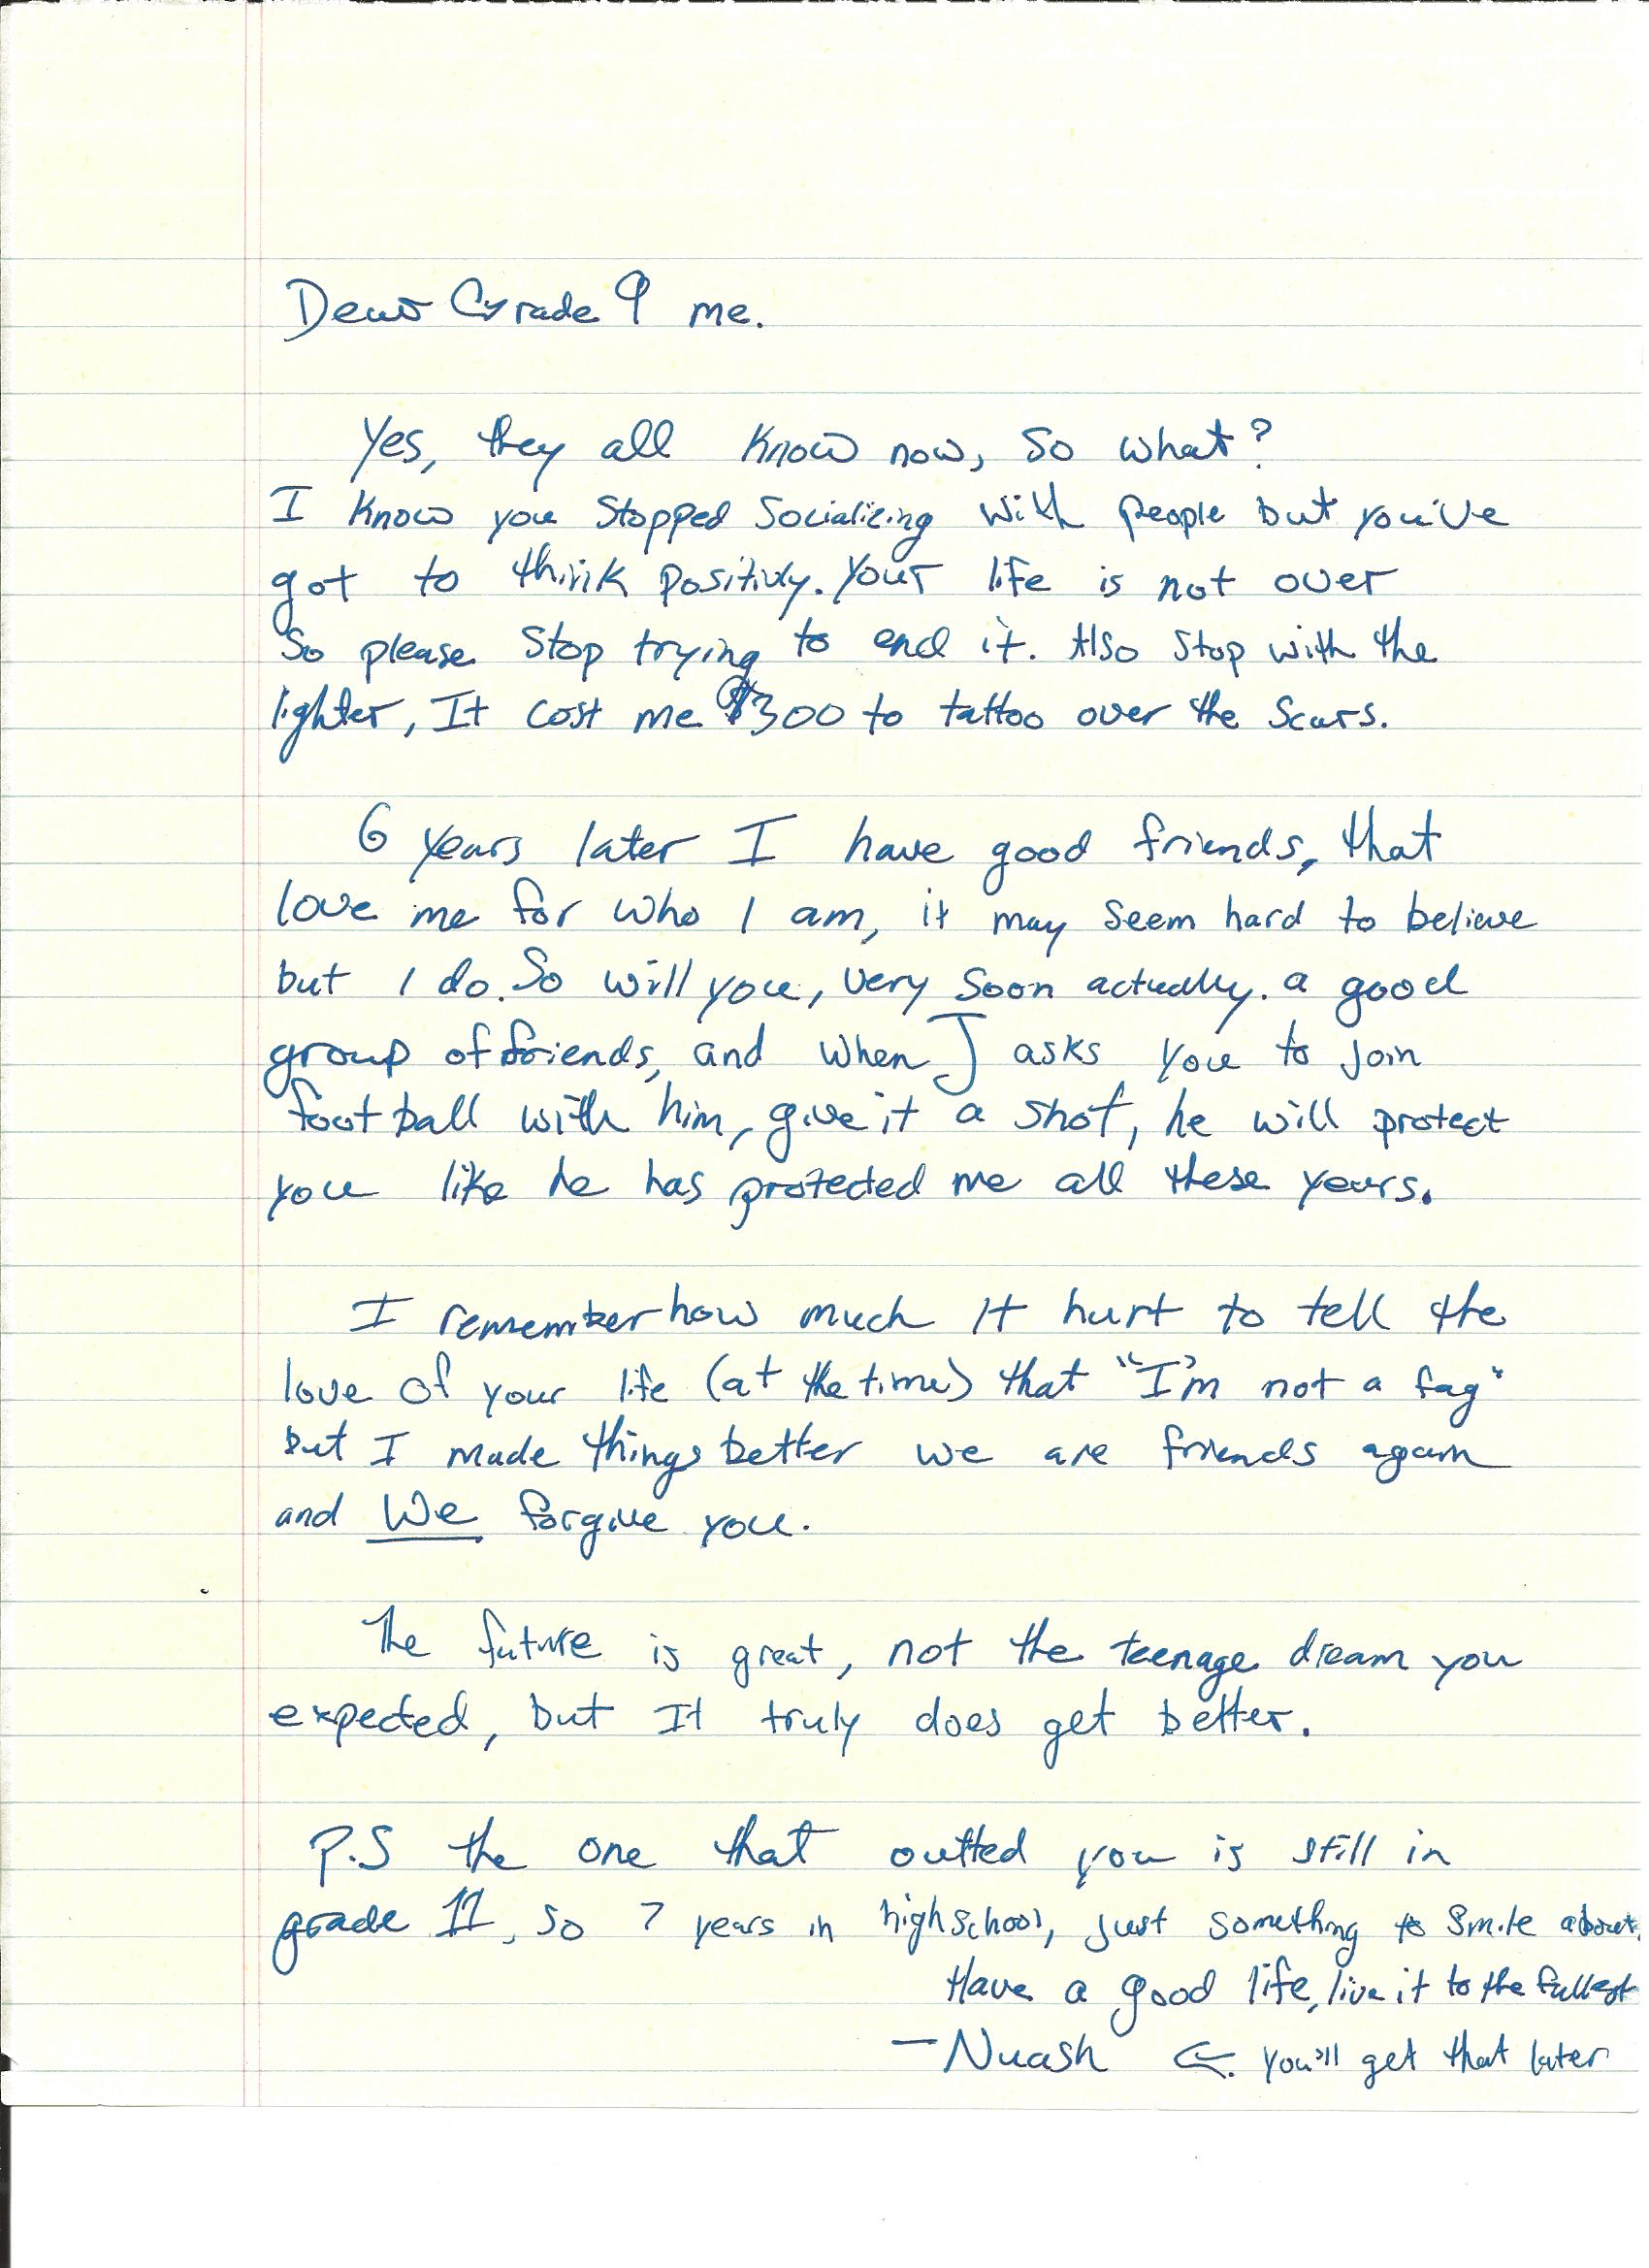 Dear Grade 9 me.
Yes, they all know now, so what?
I know you stopped socializing with people but you've
got to think positivly. Your life is not over
So please stop trying to end it. Also stop with the
lighter, It cost me $300 to tattoo over the scars.
6 years later I have good friends, that
love me for who I am, it may seem hard to believe
but I do. So will you, very soon actually. a good
group of friends, and when J asks you to join
football with him, give it a shot, he will protect
you like he has protected me all these years.
I remember how much It hurt to tell the
love of your life (at the time) that "I'm not a fag"
but I made things better we are friends again
and We forgive you.
The future is great, not the teenage dream you
expected, but It truly does get better.
P.S the one that outted you is still in
grade 11, so 7 years in highschool, just something to smile about.
Have a good life, live it to the fullest
- Nuash ← you'll get that later